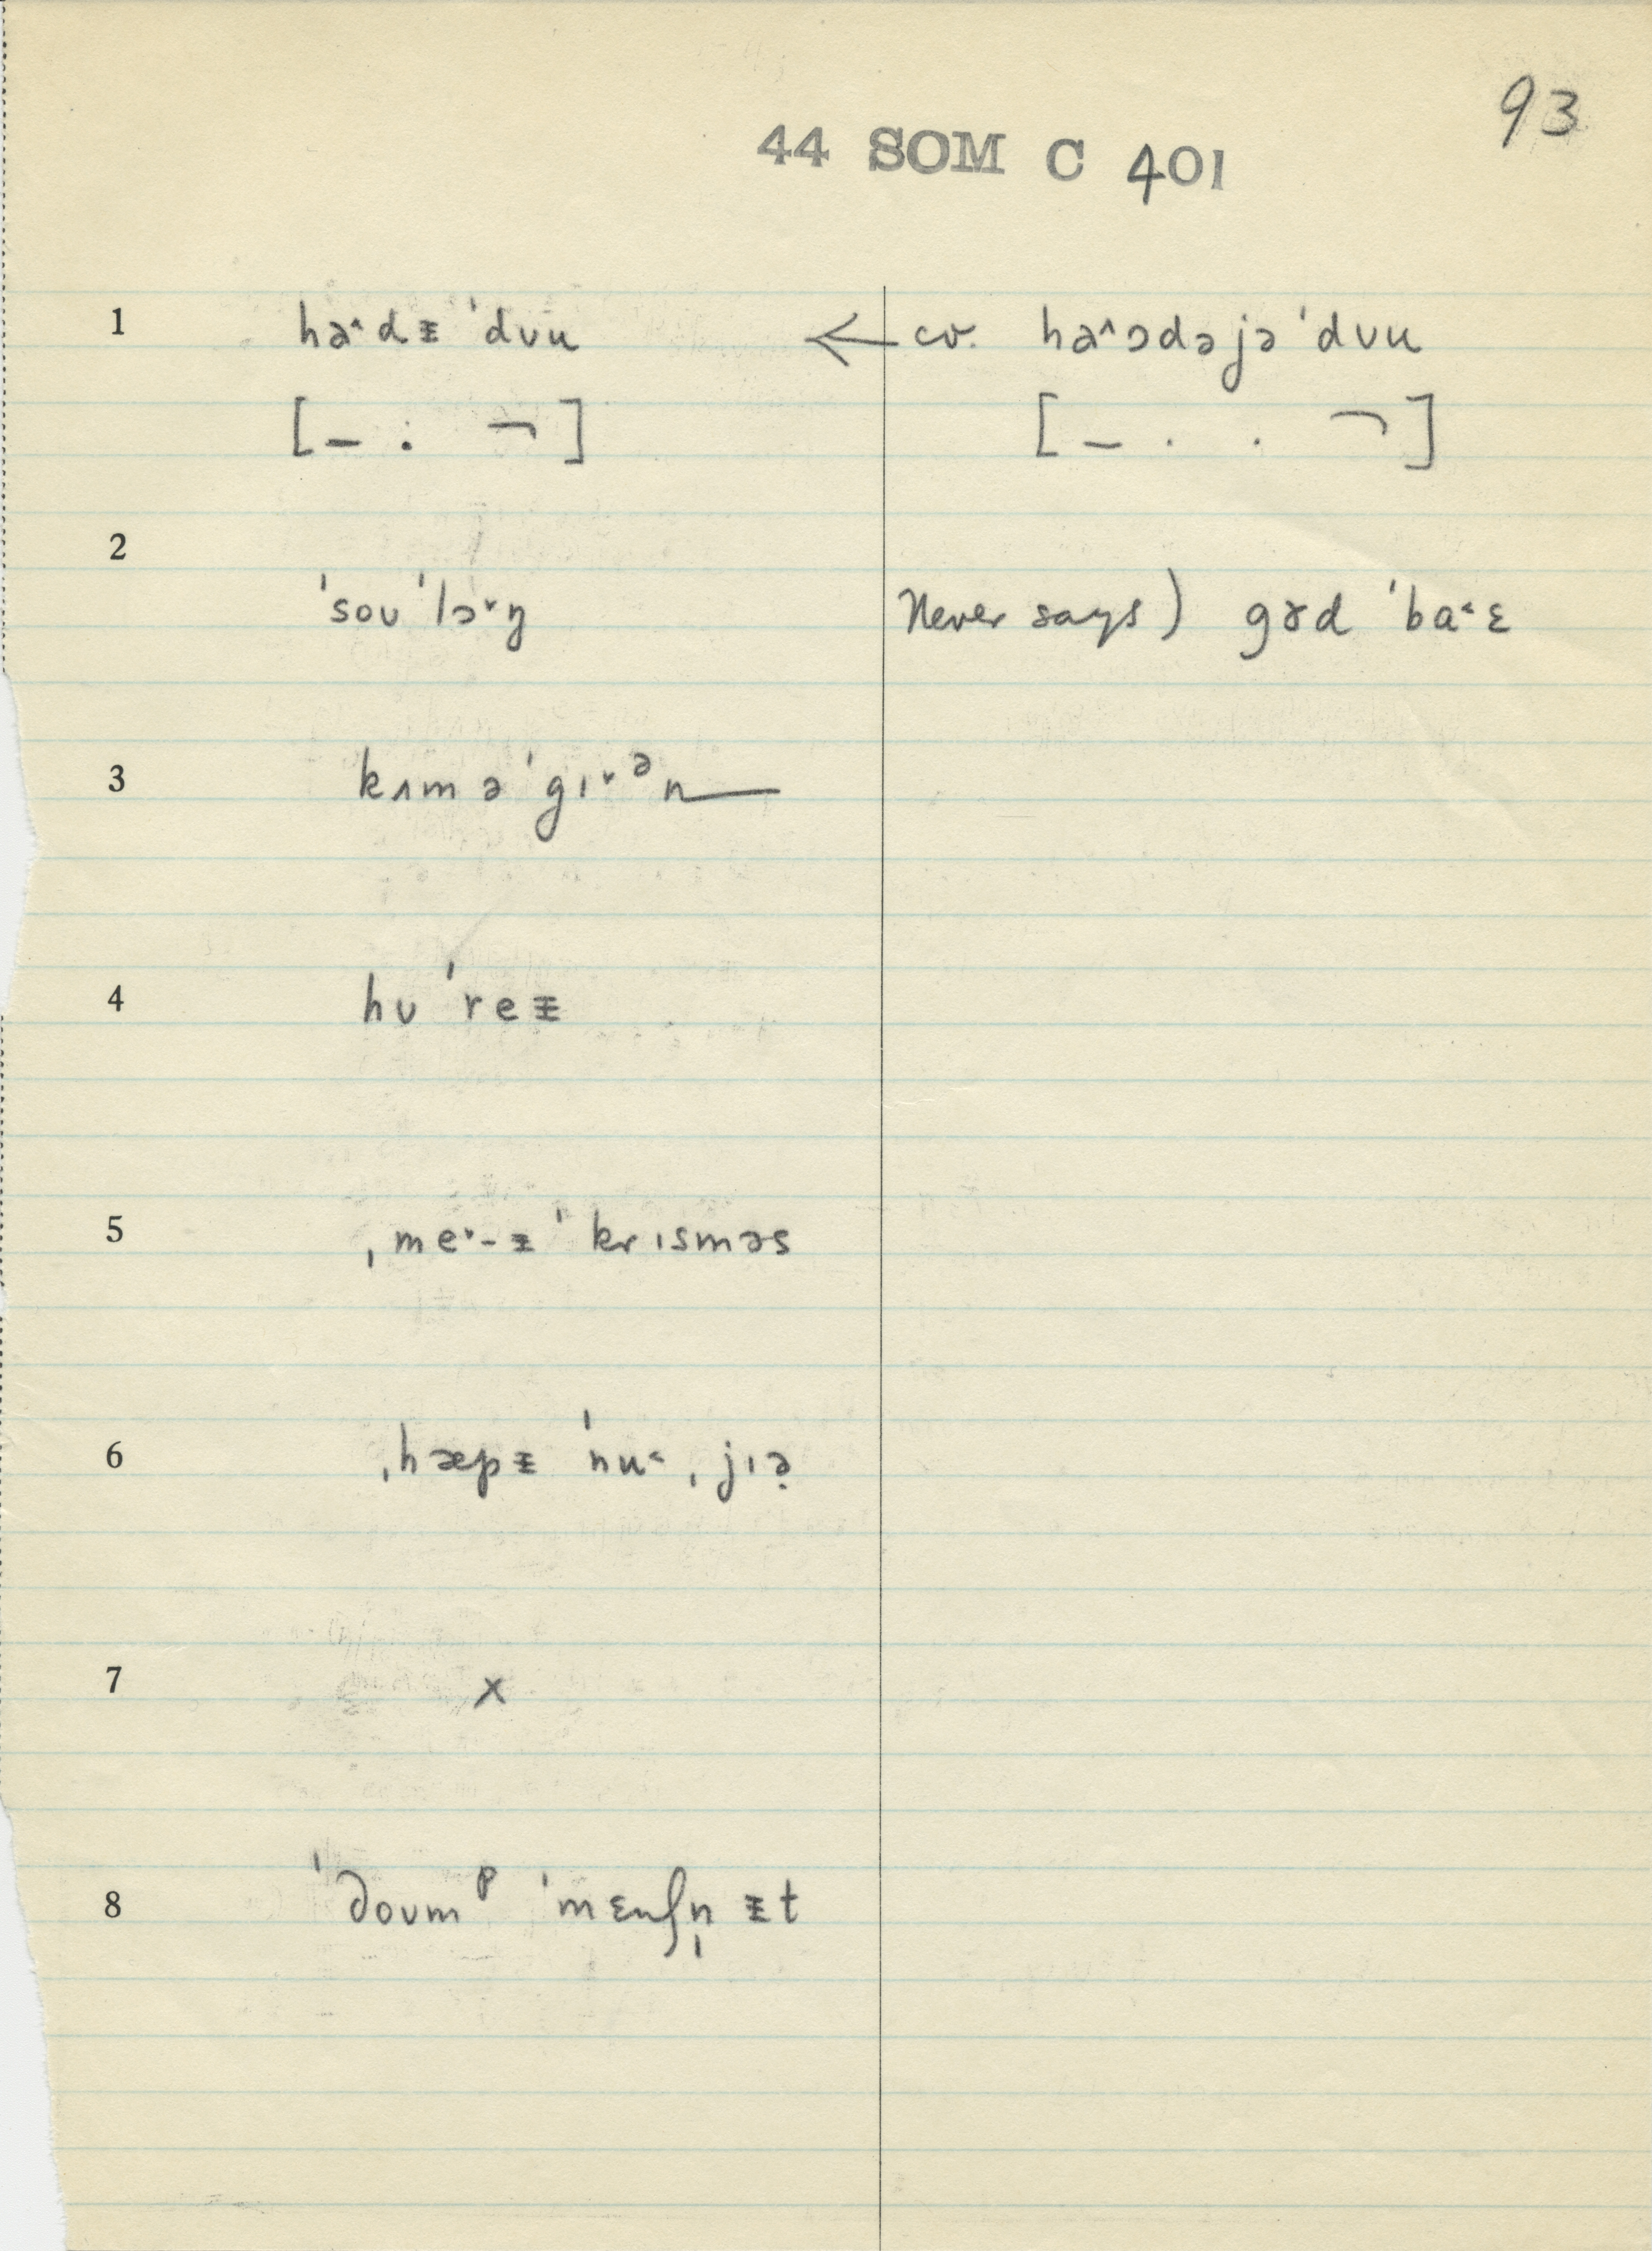 93
44 SOM C 401
1 haˆdᵻ ˈdʊu ← cv. haˆɔdəjə ˈdʊu
[– . ¬] [– . . ¬]
2
ˈsoʊ ˈlɔ˅ŋ Never says) gɤd ˈba˂ɛ
3 kʌm əˈgɪ˅ᵊn—
4 hʊˈreᵻ
5 ˌme˅-ᵻˈkrɪsməs
6 ˌhæpᵻ ˈnu˂ ˌjɪə̣
7 x
8 ˈdoʊmᵖ ˈmɛnʃn̩ ᵻt